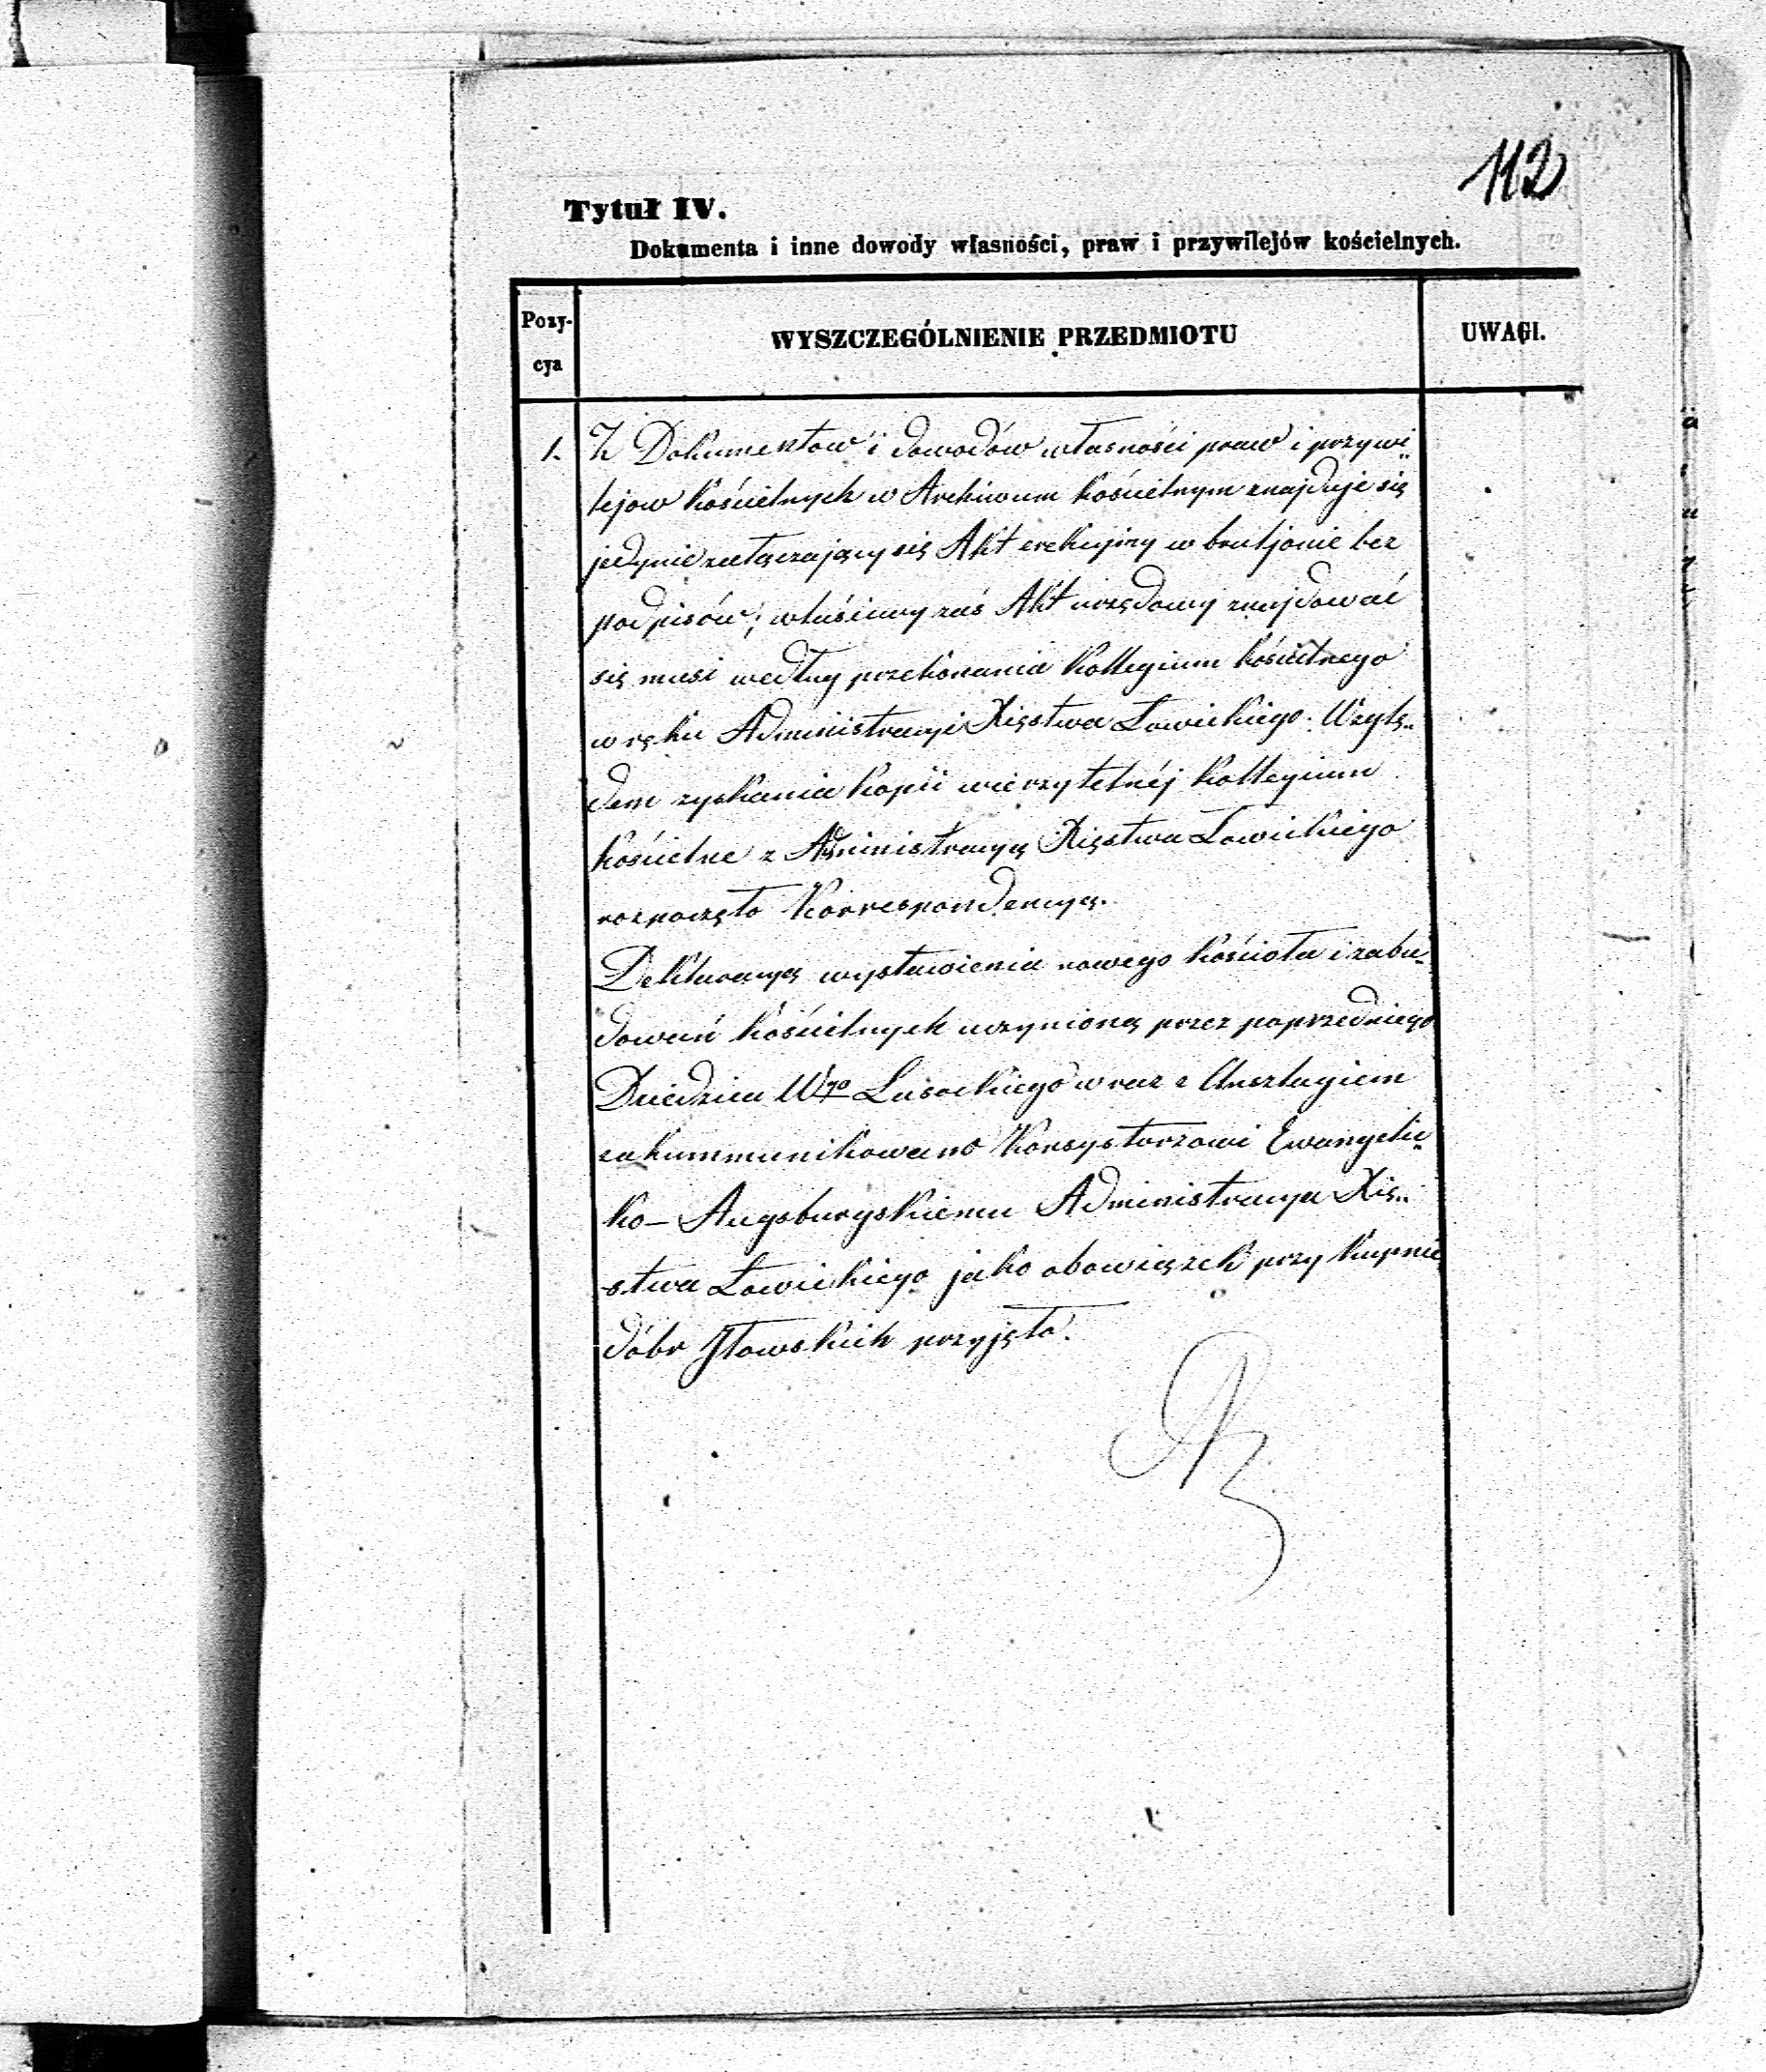 112
Tytuł IV.
Dokumenta i inne dowody własności, praw i przywilejów kościelnych.
Pozy-
cya
WYSZCZEGÓLNIENIE PRZEDMIOTU
UWAGI.
1. Z Dokumentow i dowodów własności praw i przywi„
lejow kościelnych w Archiwum kościelnym znajduje się
jedynie załączający się Akt erekcyjny w bruljonie bez
podpisów; właściwy zaś Akt urzędowy znajdować
się musi według przekonania Kollegium kościelnego
w ręku Administracyi Xięstwa Łowickiego. Wzglę„
dem zyskania kopii wierzytelnéj Kollegium
kościelne z Administracyą Xięstwa Łowickiego
rozpoczęło Korrespondencyą.
Deklaracyą wystawienia nowego kościoła i zabu„
dowań kościelnych uczynioną przez poprzedniego
Dziedzica Wgo Lasockiego wraz z Anszlagiem
zakummunikowano Konsystorzowi Ewangelic„
ko- Augsburgskiemu Administracya Xię„
stwa Łowickiego jako obowiązek przy kupnie
dóbr Iłowskich przyjęła.